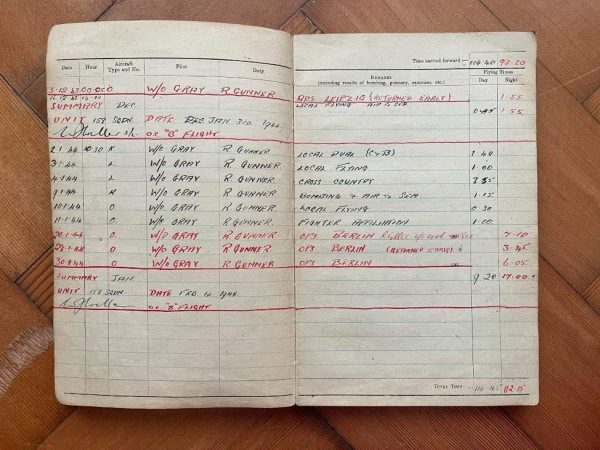 Time carried forward 104.40 93.20
Date Hour Aircraft Type and No. Pilot Duty REMARKS (including results of bombing, gunnery, exercises, etc.) Flying Times Day Night
3.12.43 W/O GRAY R GUNNER OPS LEIPZIG (RETURNED EARLY) 1.55
LOCAL FLYING AIR TO SEA
SUMMARY DEC. 0.45 1.55
UNIT 158 SQDN. DATE DEC JAN 3rd 1944.
O.C. "B" FLIGHT
2.1.44 10.30 K W/O GRAY R GUNNER LOCAL DUAL 1.40
3.1.44 L. W/O GRAY R GUNNER LOCAL FLYING 1.00
4.1.44 L W/O GRAY R GUNNER CROSS COUNTRY
9.1.44 W/O GRAY R GUNNER BOMBING & AIR TO SEA. 1.15
10.1.44 O. W/O GRAY R GUNNER LOCAL FLYING .30
11.1.44 O. W/O GRAY R GUNNER FIGHTER AFFILIATION 1.00
O W/O GRAY R GUNNER OPS BERLIN 7.10
O W/O GRAY R GUNNER OPS BERLIN (RETURNED EARLY) 3.45
O W/O GRAY R GUNNER OPS BERLIN 6.05
SUMMARY JAN. 9.20 17.00
UNIT 158 SQDN. DATE FEB. 1944.
O.C. "B" FLIGHT
TOTAL TIME 114.45 112.15